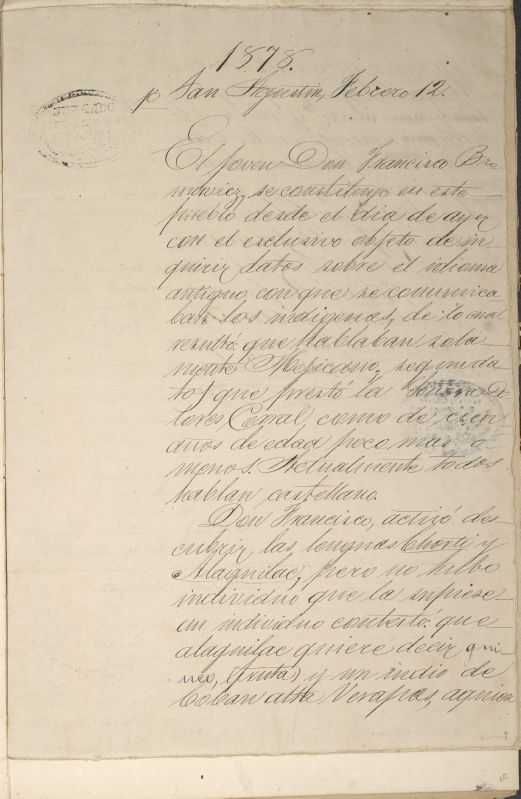 1878.
p San Agustin, Febrero 12.
JUZGADO
El joven Don Francisco Bro
mowicz, se constituyo en este
pueblo desde el dia de ayer
con el exclusivo objeto de in
quirir datos sobre el idioma
antiguo, con que se comunica
ban los indigenas, de lo cual
resultó: que hablaban sola
mente Mejicano, segun da
to, que prestó la Señora Do
lores Corral, como de cien
años de edad poco mas o
menos. Actualmente todos
hablan castellano.
Don Francisco, activó des
cubrir las lenguas Chorti y
Alaguilac, pero no hubo
individuo que la supiese
un individuo contestó: que
alaguilac quiere decir gui
neo, (fruta) y un indio de
Coban alta Verapaz, aquien